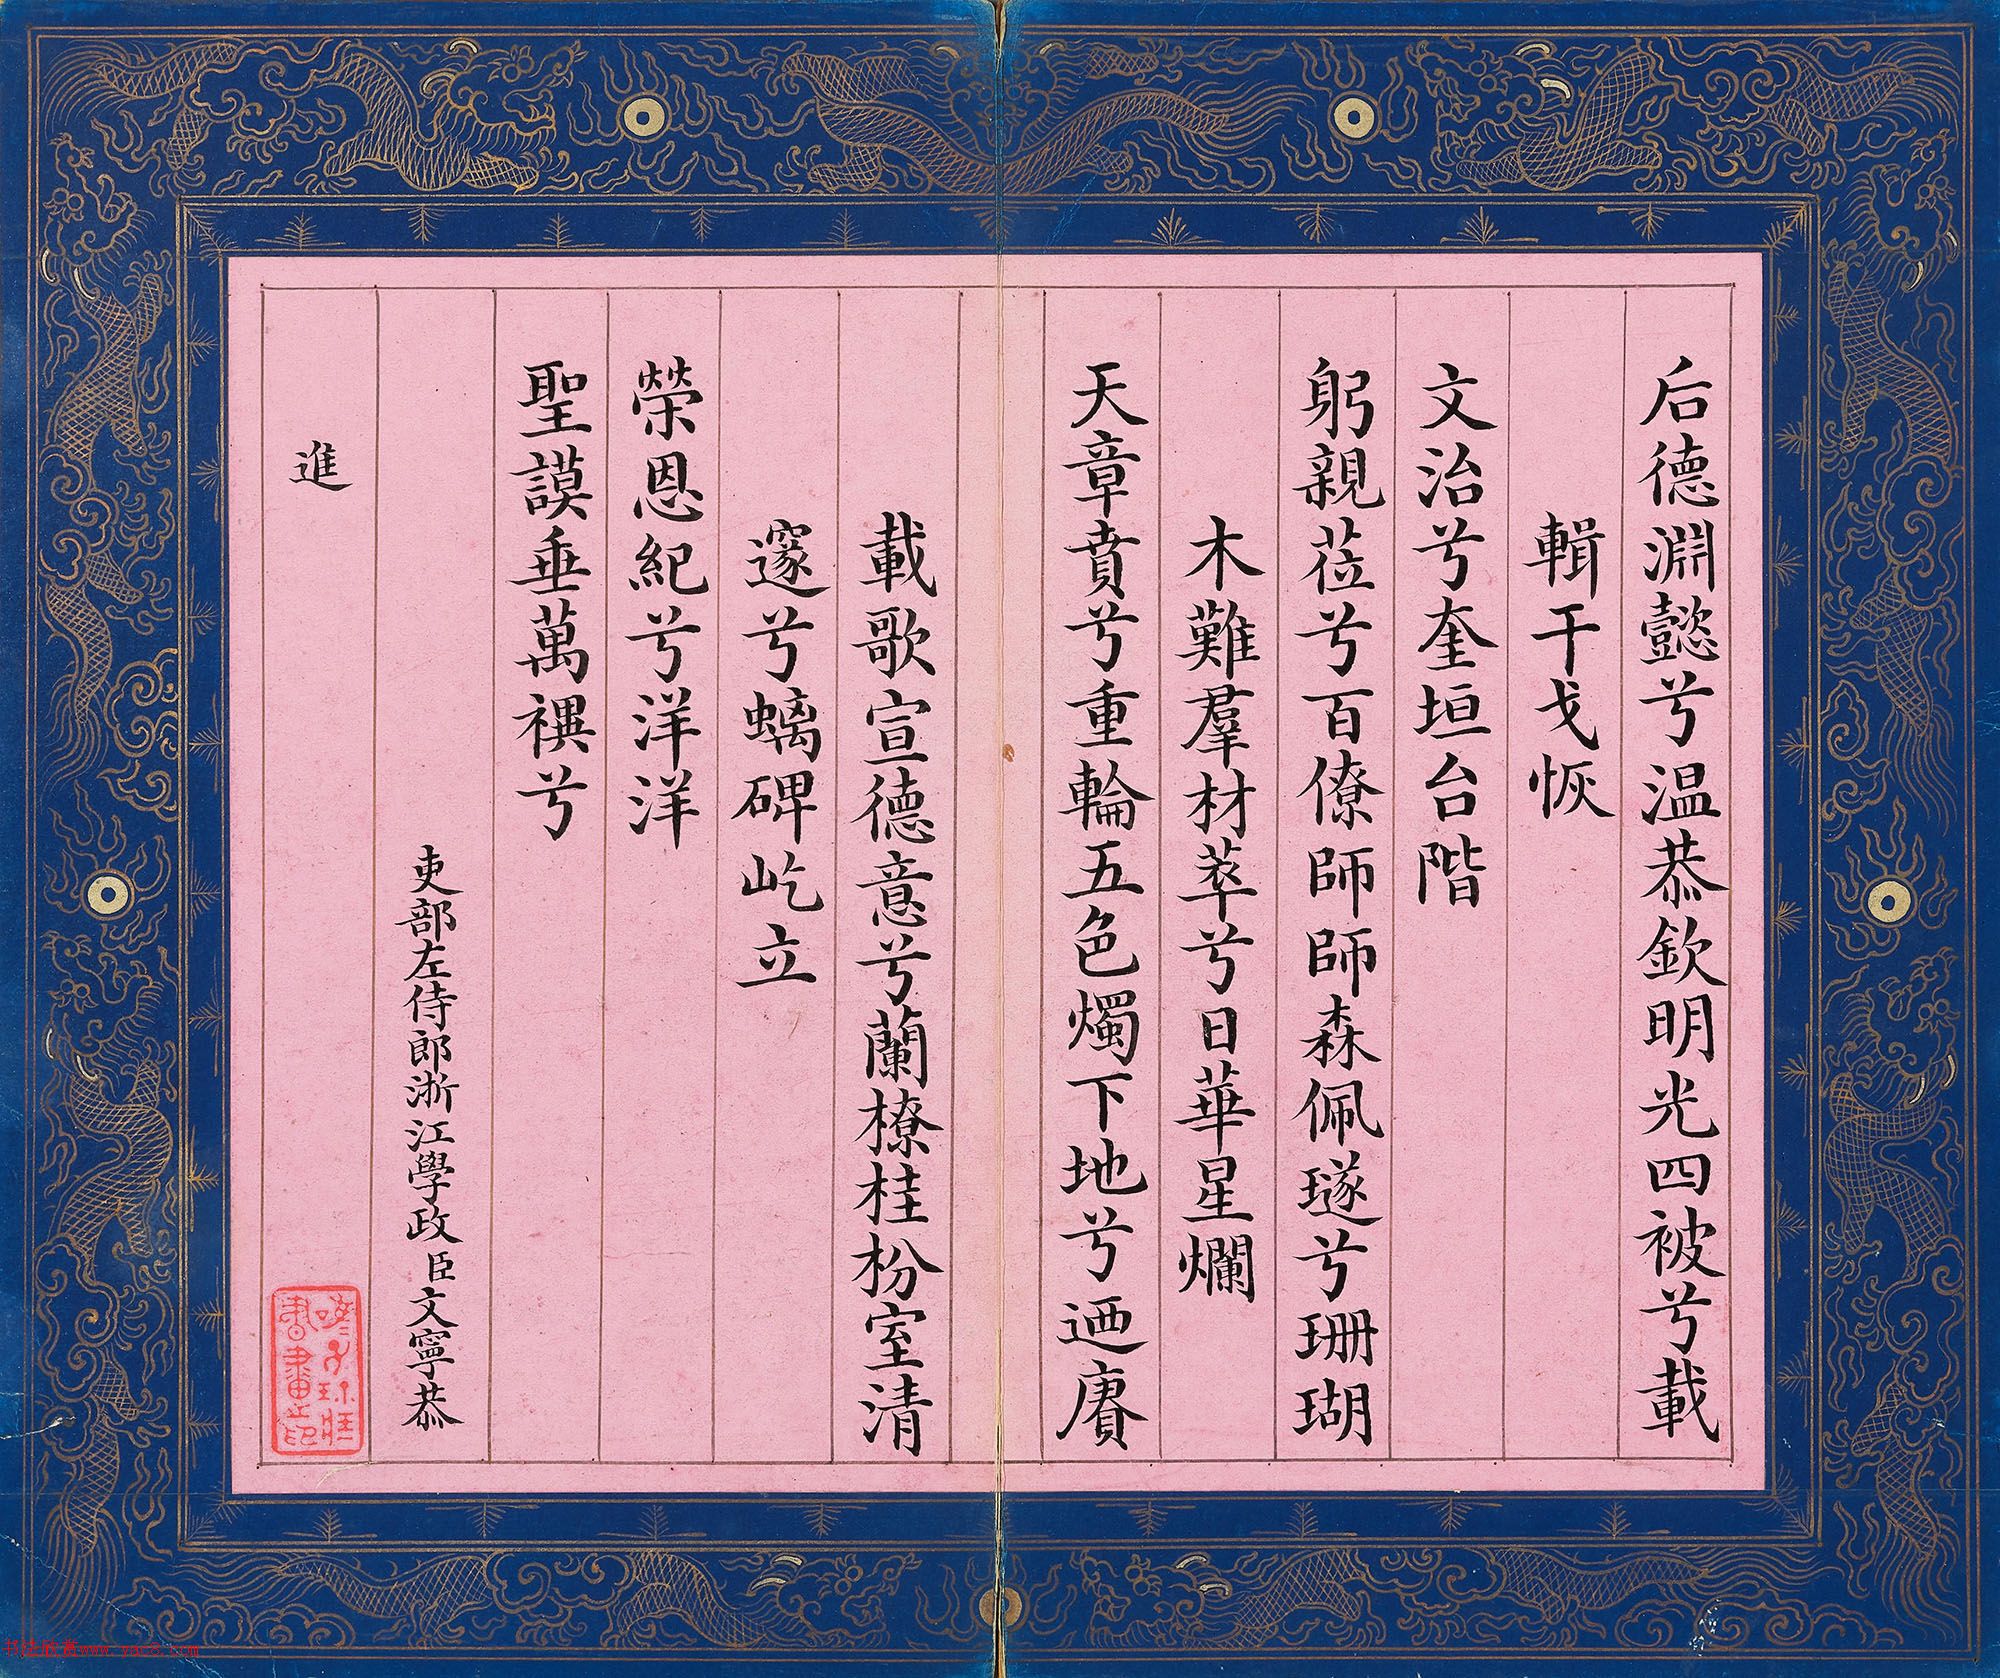 后德淵懿兮溫恭欽明光四被兮載
輯干戈恢
文治兮奎垣台階
躬親莅兮百僚師師森佩璲兮珊瑚
木難羣材萃兮日華星爛
天章賁兮重輪五色燭下地兮迺賡
載歌宣德意兮蘭橑桂枌室清
邃兮螭碑屹立
榮恩紀兮洋洋
聖謨垂萬禩兮
吏部左侍郎浙江學政臣文寧恭
進
书法欣赏www.yac8.com